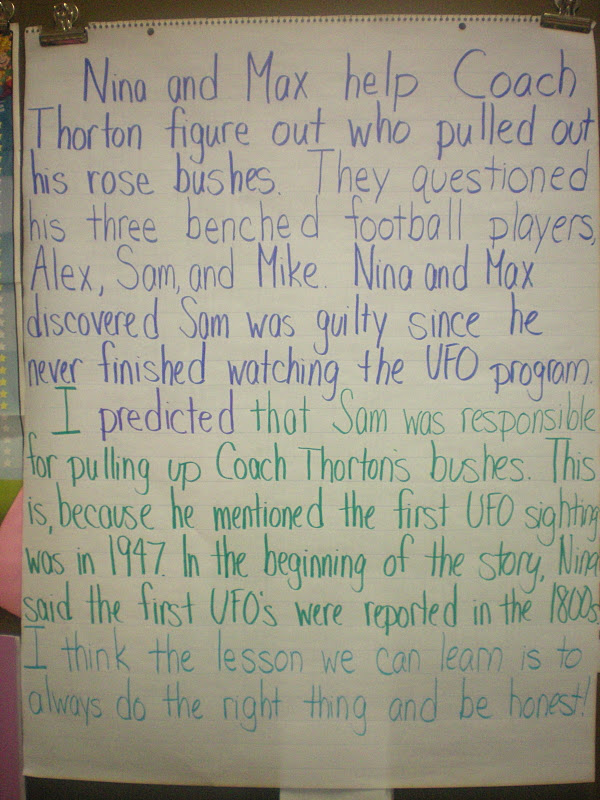 Nina and Max help Coach
Thorton figure out who pulled out
his rose bushes. They questioned
his three benched football players,
Alex, Sam, and Mike. Nina and Max
discovered Sam was guilty since he
never finished watching the UFO program.
I predicted that Sam was responsible
for pulling up Coach Thorton's bushes. This
is, because he mentioned the first UFO sighting
was in 1947. In the beginning of the story, Nina
said the first UFO's were reported in the 1800s.
I think the lesson we can learn is to
always do the right thing and be honest!